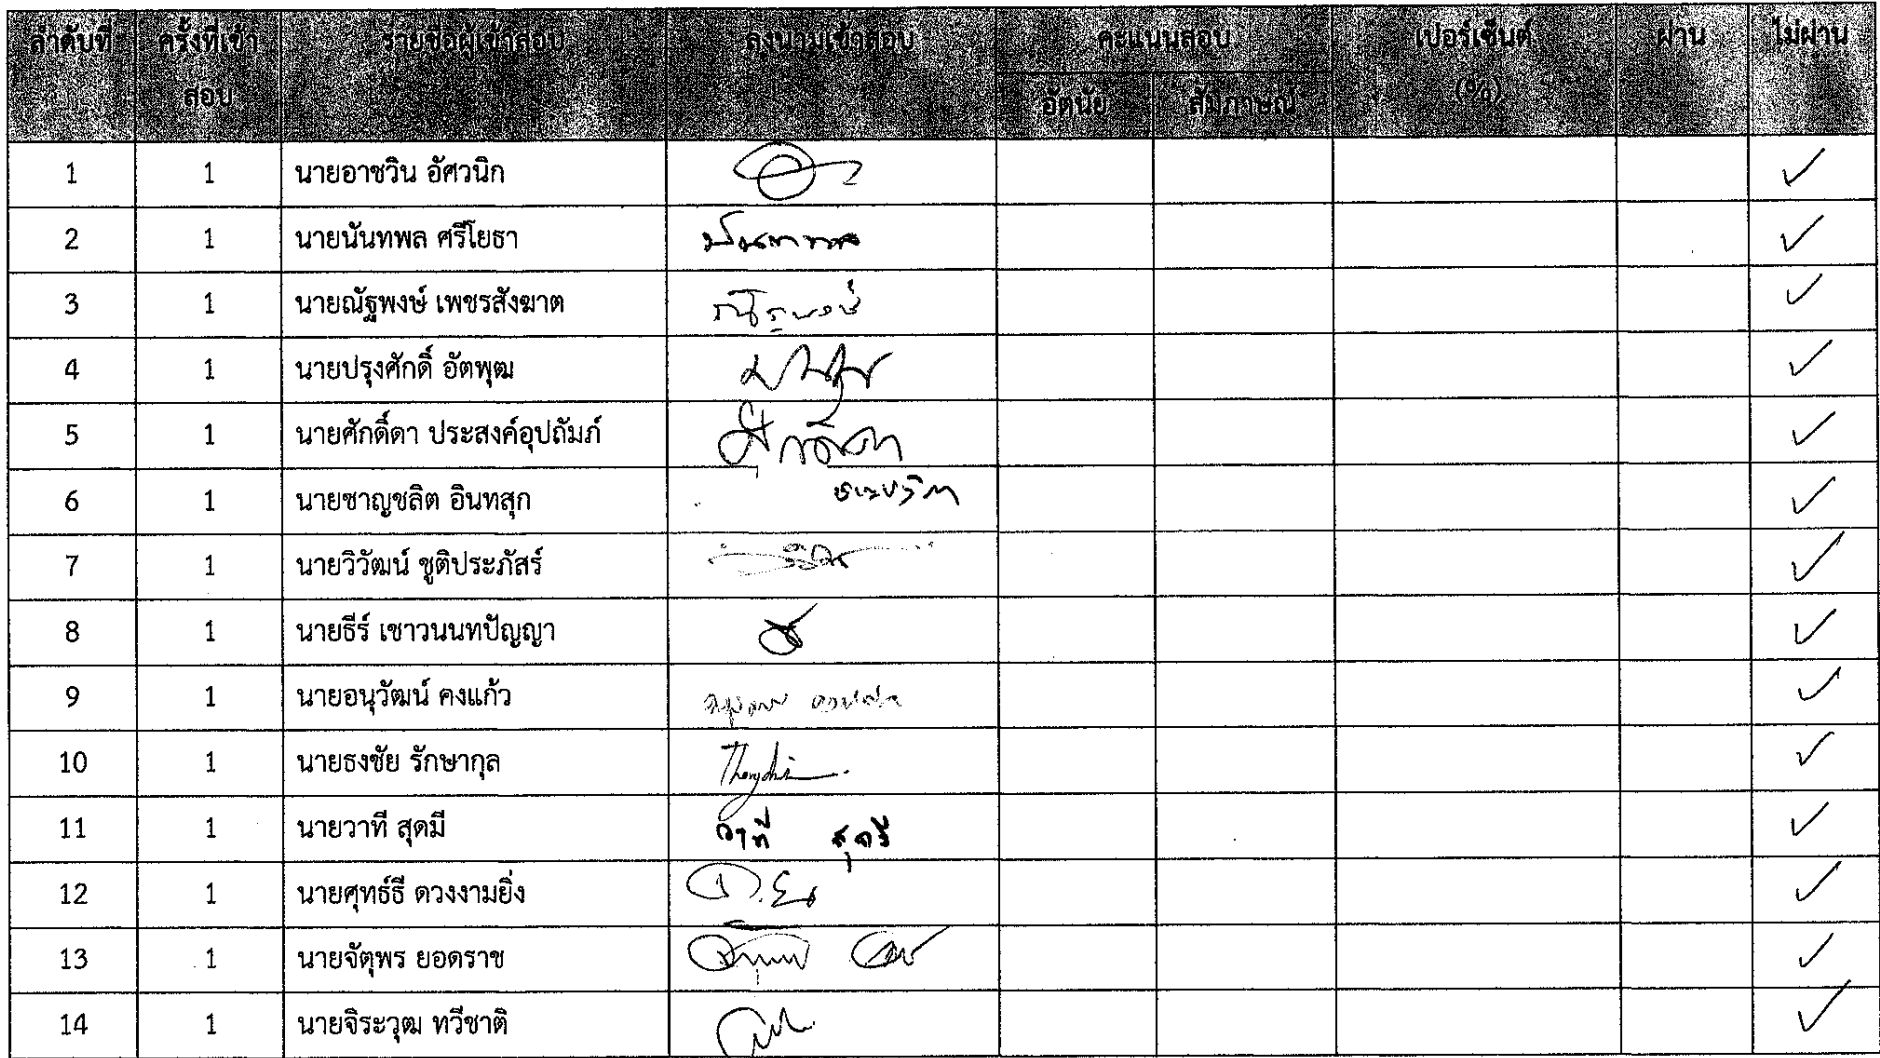 ลำดับที่ ครั้งที่เข้าสอบ รายชื่อผู้เข้าสอบ ลงนามเข้าสอบ คะแนนสอบ เปอร์เซ็นต์ (%) ผ่าน ไม่ผ่าน
อัตนัย สัมภาษณ์
1 1 นายอาชวิน อัศวนิก ✓
2 1 นายนันทพล ศรีโยธา นันทพล ✓
3 1 นายณัฐพงษ์ เพชรสังฆาต ณัฐพงษ์ ✓
4 1 นายปรุงศักดิ์ อัตพุฒ ✓
5 1 นายศักดิ์ดา ประสงค์อุปถัมภ์ ศักดิ์ดา ✓
6 1 นายชาญชลิต อินทสุก ✓
7 1 นายวิวัฒน์ ชูติประภัสร์ ✓
8 1 นายธีร์ เชาวนนทปัญญา ✓
9 1 นายอนุวัฒน์ คงแก้ว ✓
10 1 นายธงชัย รักษากุล Thongchai ✓
11 1 นายวาที สุดมี วาที สุดมี ✓
12 1 นายศุทธ์ธี ดวงงามยิ่ง ✓
13 1 นายจัตุพร ยอดราช ✓
14 1 นายจิระวุฒ ทวีชาติ ✓